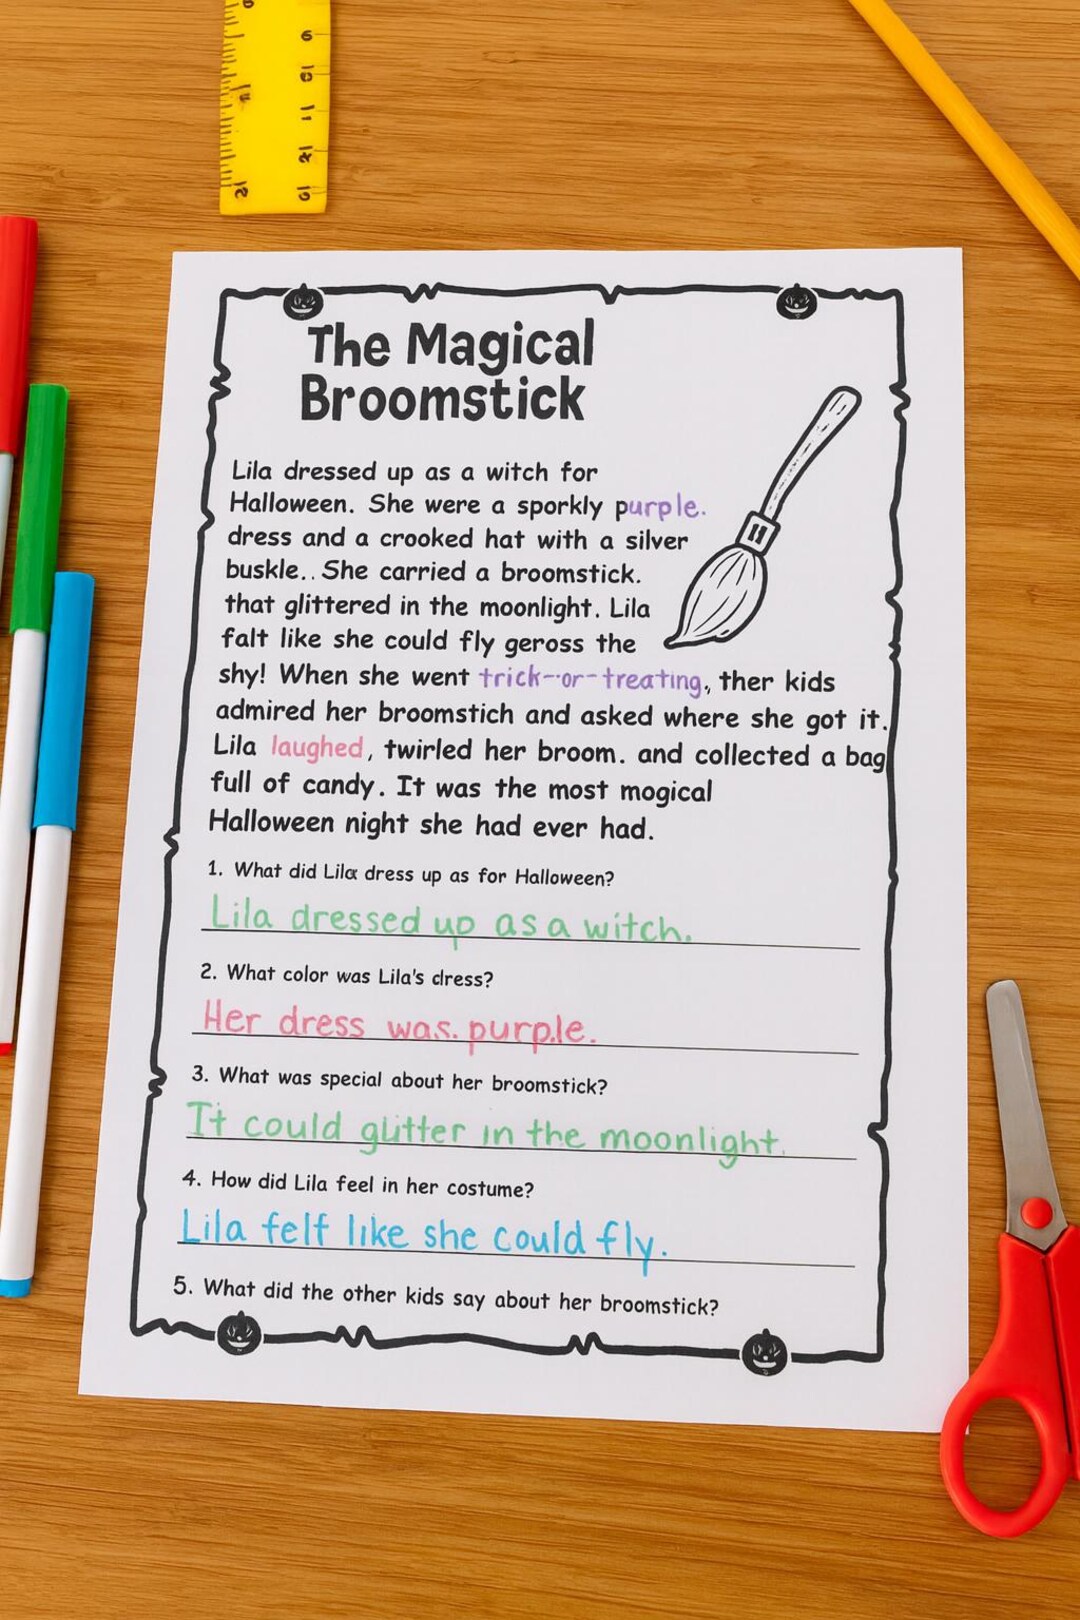 The Magical
Broomstick
Lila dressed up as a witch for
Halloween. She were a sporkly purple.
dress and a crooked hat with a silver
buskle.. She carried a broomstick.
that glittered in the moonlight. Lila
falt like she could fly geross the
shy! When she went trick-or-treating, ther kids
admired her broomstich and asked where she got it.
Lila laughed, twirled her broom. and collected a bag
full of candy. It was the most mogical
Halloween night she had ever had.
1. What did Lila dress up as for Halloween?
Lila dressed up as a witch.
2. What color was Lila's dress?
Her dress was. purple.
3. What was special about her broomstick?
It could glitter in the moonlight.
4. How did Lila feel in her costume?
Lila felf like she could fly.
5. What did the other kids say about her broomstick?